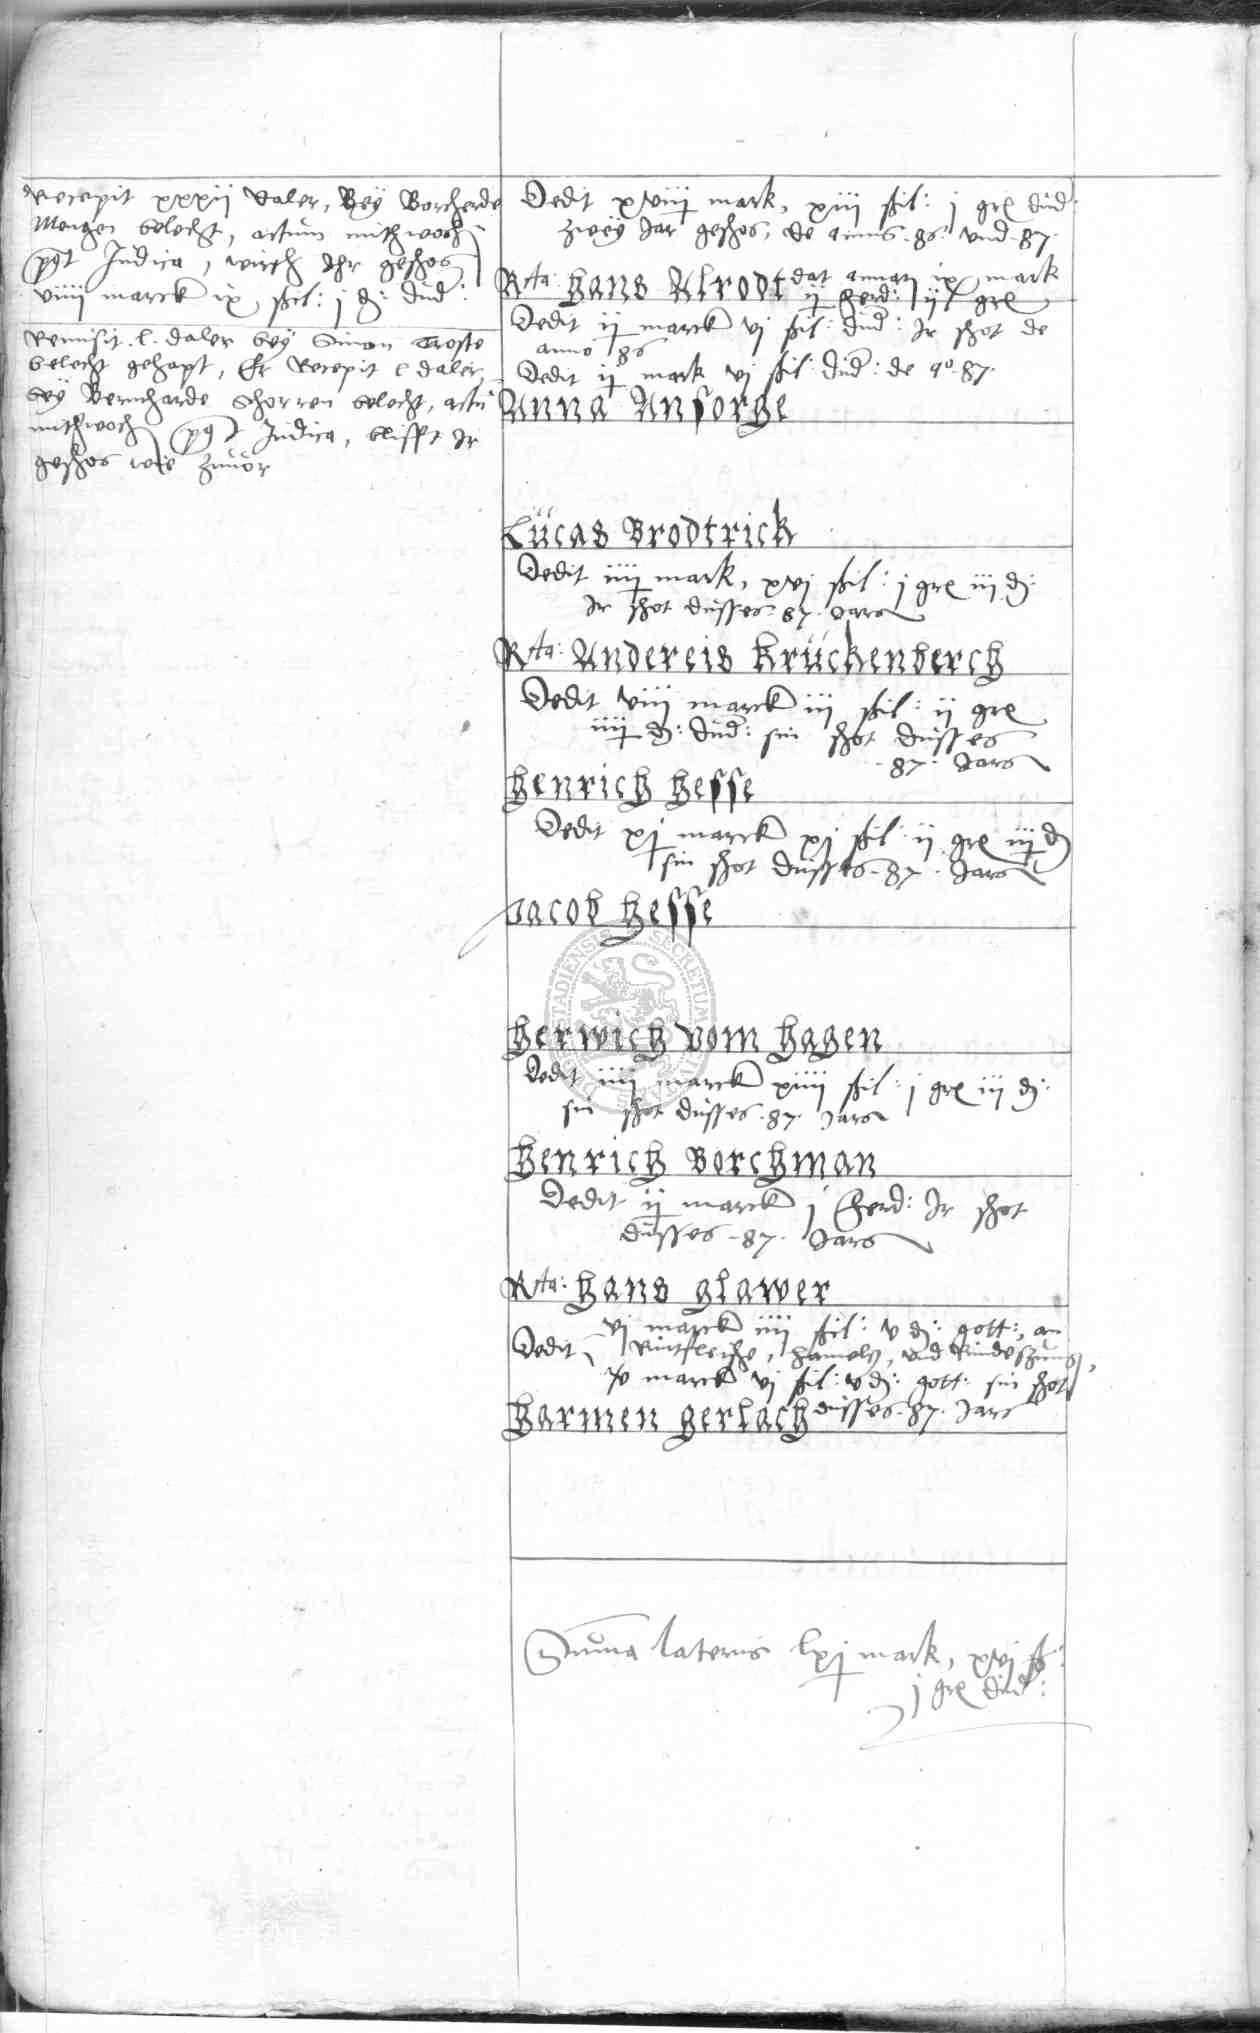 Recepit xxxij Daler, Bey Borcherde
Mengen belecht, actum mithwoch
post Judica, wirth Ihr geschos
viiij marck ix schil: j d: dimid:
Remisit l. daler bey Simon Troste
belecht gehapt, Er Recepit l daler,
bey Bernharde Schorren belecht, actu
mithwoch post Judica, blifft Ir
geschos wie zuuor
Dedit xviij mark, xiij schil: j gr dimid:
zwey Jar geschos, de annis .86. vnd .87.
Rta: Hans Alrodt dat annat ix mark
ij ferd: ij gr
Dedit ij marck vj schil: dimid: Ir schot de
anno 86
Dedit ij mark vj schil: dimid: de ao .87.
Anna Ansorge
Lucas Brodtrick
Dedit iiij mark, xvj schil: j gr iij d:
Ir schot dusses .87. Jars
Rta: Andereis Kruckenberch
Dedit viij marck iij schil: ij gr
iiij d: dimid: sin schot dusses
.87. Jars
Henrich Hesse
Dedit xj marck xj schil: ij gr iiij d
sin schot dusses .87. Jars
Jacob Hesse
SECRETUM
Herwich vom Hagen
Dedit iiij marck xiiij schil: j gr iij d:
sin schot dusses .87. Jars
Henrich Borchman
Dedit ij marck j ferd: Ir schot
dusses .87. Jars
Rta: Hans Glawer
vj marck iiij schil: v d: gott:, an
Dedit Rintfleische, Hameln, vnd
marck vj schil: v d: gott: sin schot
Harmen Gerlach dusses .87. Jars
Summa lateris lxj mark, xvj ß:
j gr dimid: